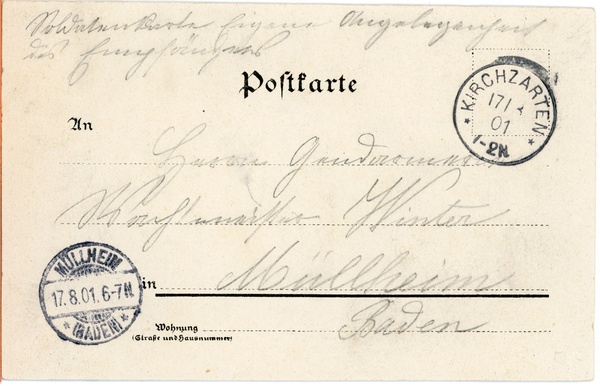 Soldatenkarte Eigene Angelegenheit
des Empfängers
Postkarte
* KIRCHZARTEN *
17/8
01
1-2N
An
Herrn Gendarmerie
Wachtmeister Winter
MÜLLHEIM
17.8.01.6-7N.
* (BADEN) *
in Müllheim
Baden
Wohnung
(Straße und Hausnummer)